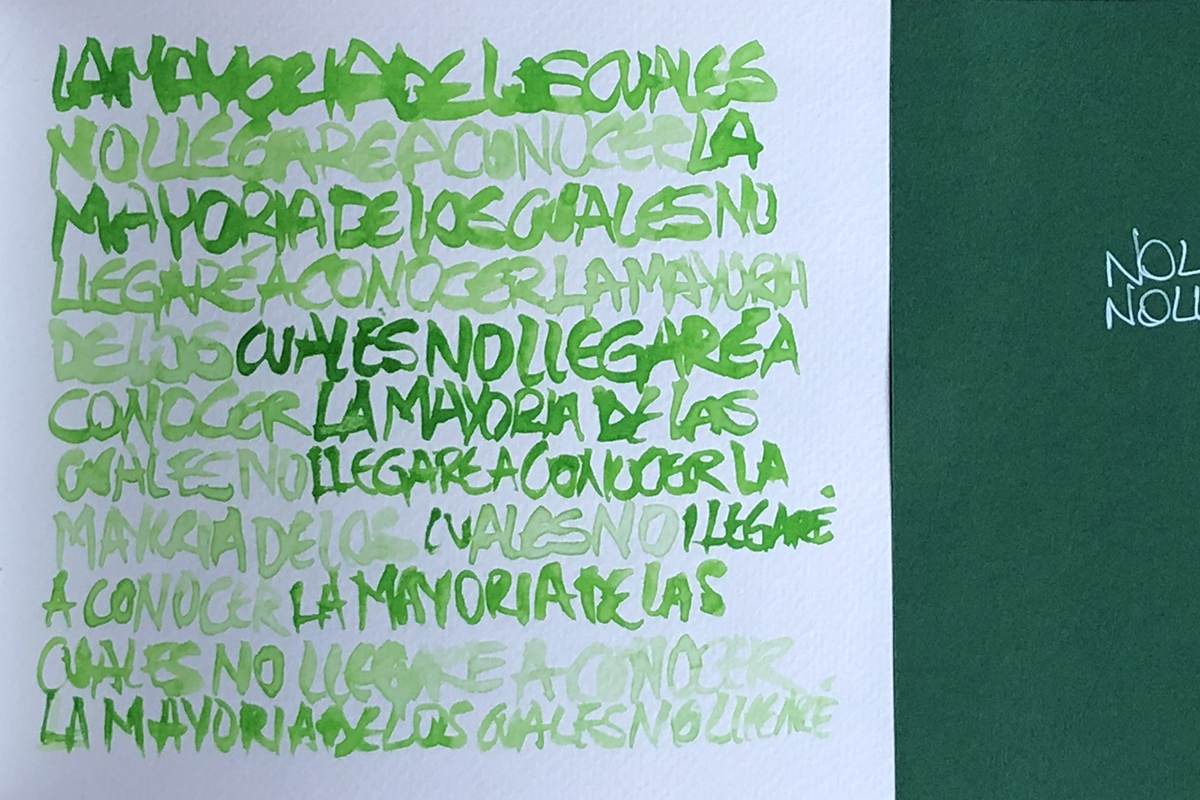 LA MAYORIA DE LAS CUALES
NO LLEGARE A CONOCER LA
MAYORIA DE LOS CUALES NO
LLEGARÉ A CONOCER LA MAYORIA
DE LOS CUALES NO LLEGARÉ A
CONOCER LA MAYORIA DE LAS
CUALES NO LLEGARE A CONOCER LA
MAYORIA DE LOS CUALES NO LLEGARÉ
A CONOCER LA MAYORIA DE LAS
CUALES NO LLEGARE A CONOCER
LA MAYORIA DE LOS CUALES NO LLEGARÉ
NOL
NOLL